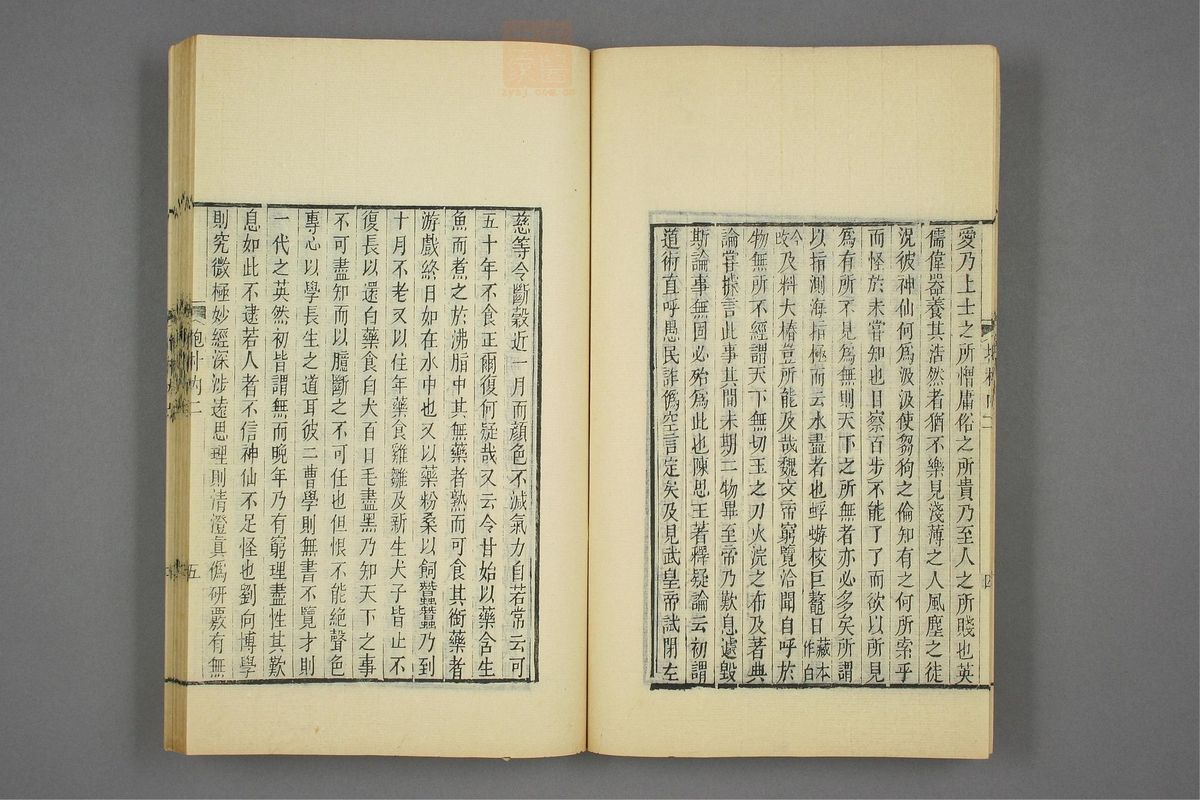 愛乃上士之所憎庸俗之所貴乃至人之所賤也英
儒偉器養其浩然者猶不樂見淺薄之人風塵之徒
況彼神仙何爲汲汲使芻狗之倫知有之何所索乎
而怪於未嘗知也目察百步不能了了而欲以所見
爲有所不見爲無則天下之所無者亦必多矣所謂
以指測海指極而云水盡者也蜉蝣校巨鼇日藏本作白
今改及料大椿豈所能及哉魏文帝窮覽洽聞自呼於
物無所不經謂天下無切玉之刀火浣之布及著典
論嘗據言此事其間未期二物畢至帝乃歎息遽毀
斯論事無固必殆爲此也陳思王著釋疑論云初謂
道術直呼愚民詐僞空言定矣及見武皇帝試閉左
四
慈等令斷穀近一月而顏色不減氣力自若常云可
五十年不食正爾復何疑哉又云令甘始以藥含生
魚而煮之於沸脂中其無藥者熟而可食其銜藥者
游戲終日如在水中也又以藥粉桑以飼蠶蠶乃到
十月不老又以住年藥食雞雛及新生犬子皆止不
復長以還白藥食白犬百日毛盡黑乃知天下之事
不可盡知而以臆斷之不可任也但恨不能絕聲色
專心以學長生之道耳彼二曹學則無書不覽才則
一代之英然初皆謂無而晚年乃有窮理盡性其歎
息如此不逮若人者不信神仙不足怪也劉向博學
則究微極妙經深涉遠思理則清澄眞僞研覈有無
抱朴內二
五
zysj.com.cn